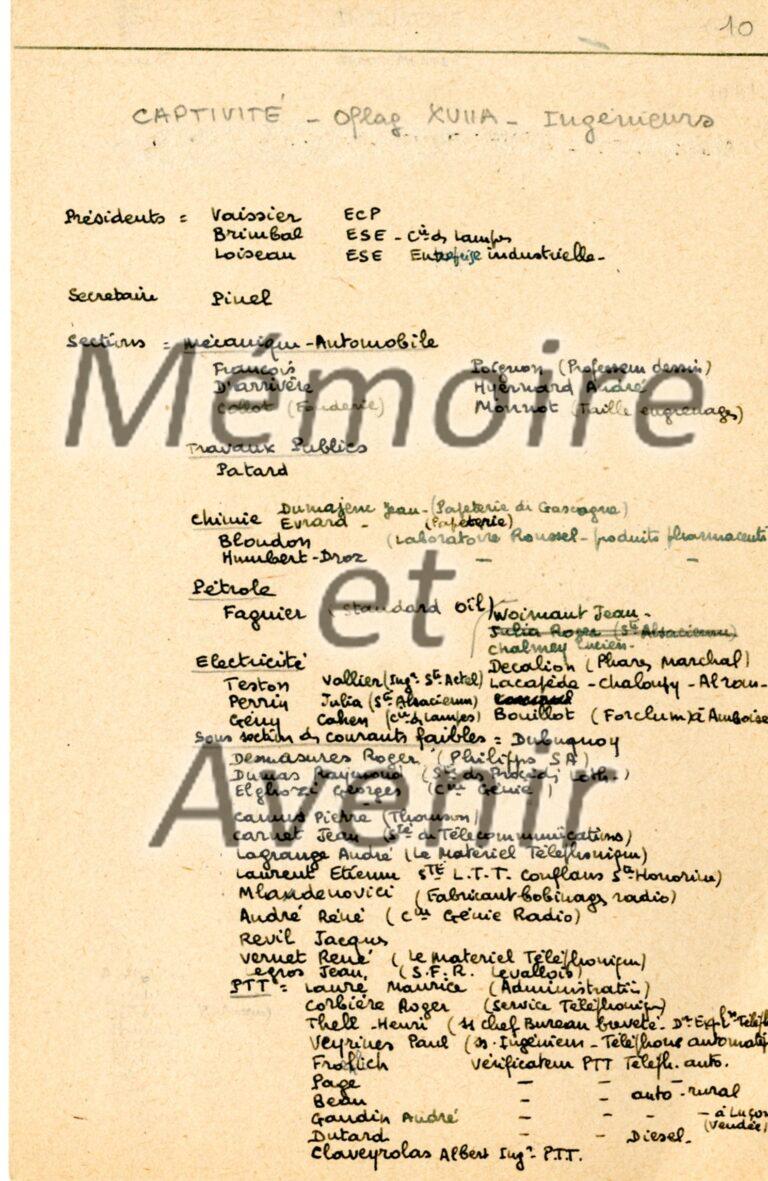 10
CAPTIVITÉ - Oflag XVIIA - Ingénieurs
Présidents = Vaissier ECP
Brimbal ESE - Cie des Lampes
Loiseau ESE Entreprise industrielle -
Secretaire Pinel
Sections = Mécanique - Automobile
François Poignon (Professeur dessin)
D'arrivère Hyernard André
Collot (Fonderie) Monnot (Taille engrenages)
Travaux Publics
Patard
Dumajene Jean - (Papeterie de Gascogne)
Chimie Evrard - (Papéterie)
Bloudon (Laboratoire Roussel - produits pharmaceuti
Humbert-Droz - -
Pétrole
Fagnier (Standard Oil) Woimant Jean -
Julia Roger (Sté Alsacienne)
Chalmey Lucien -
Electricité Decalion (Phares Marchal)
Teston Vallier (Ingr Sté Actel) Lacapède - Chaloupy - Alran -
Perrin Julia (Sté Alsacienne)
Gény Cahen (Cie des Lampes) Bouillot (Forclum) à Amboise
Sous section des courants faibles = Dubuquoy
Desmasures Roger (Philipps SA)
Dumas Raymond (Sté des Procédés Loth.)
Elghozi Georges (Cie Génie)
Camus Pierre (Thomson)
Carnet Jean (Sté de Télécommunications)
Lagrange André (Le Materiel Téléphonique)
Laurent Etienne STÉ L.T.T. Conflans Ste Honorine)
Mladenovici (Fabricant bobinages radio)
André René (Cie Génie Radio)
Revil Jacques
Vernet René (Le Materiel Téléphonique)
egros Jean, (S.F.R. Levallois)
PTT = Laure Maurice (Administration)
Corbière Roger (Service Téléphonique)
Thell - Henri (ss chef Bureau breveté - Dr Expl. Teléph
Veyrines Paul (ss. Ingénieur - Téléphone automati
Frohlich Vérificateur PTT Teléph. auto.
Page - - -
Beau - - auto-rural
Gaudin André - - - - à Luçon
(Vendée)
Dutard - - Diesel -
Claveyrolas Albert Ingr P.T.T.
Mémoire
et
Avenir